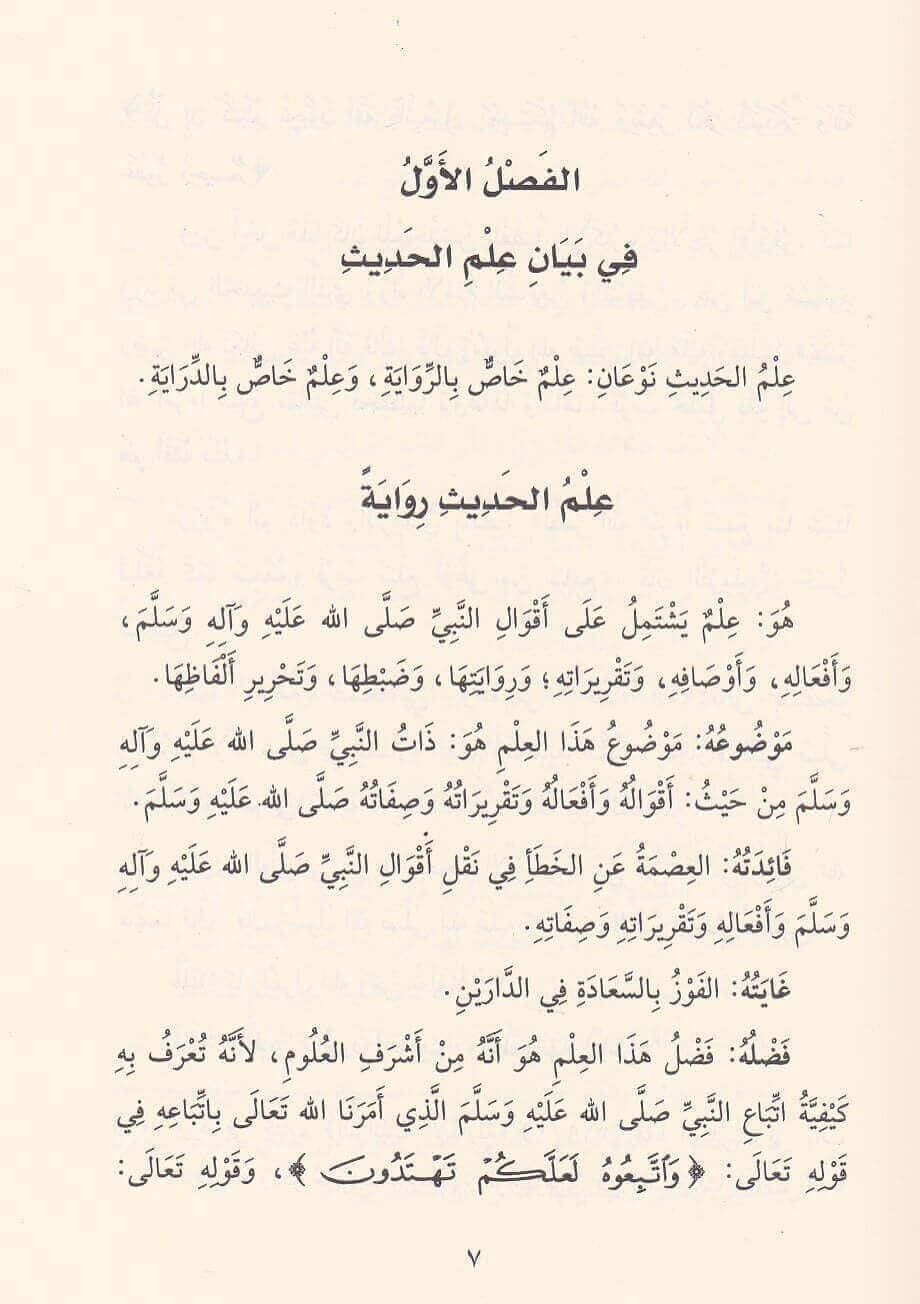 الفَصْلُ الأَوَّلُ
فِي بَيَانِ عِلْمِ الحَدِيثِ
عِلْمُ الحَدِيثِ نَوْعَانِ: عِلْمٌ خَاصٌّ بِالرِّوَايَةِ، وَعِلْمٌ خَاصٌّ بِالدِّرَايَةِ.
عِلْمُ الحَدِيثِ رِوَايَةً
هُوَ: عِلْمٌ يَشْتَمِلُ عَلَى أَقْوَالِ النَّبِيِّ صَلَّى الله عَلَيْهِ وَآلِهِ وَسَلَّمَ،
وَأَفْعَالِهِ، وَأَوْصَافِهِ، وَتَقْرِيرَاتِهِ؛ وَرِوَايَتِهَا، وَضَبْطِهَا، وَتَحْرِيرِ أَلْفَاظِهَا.
مَوْضُوعُهُ: مَوْضُوعُ هَذَا العِلْمِ هُوَ: ذَاتُ النَّبِيِّ صَلَّى الله عَلَيْهِ وَآلِهِ
وَسَلَّمَ مِنْ حَيْثُ: أَقْوَالُهُ وَأَفْعَالُهُ وَتَقْرِيرَاتُهُ وَصِفَاتُهُ صَلَّى الله عَلَيْهِ وَسَلَّمَ.
فَائِدَتُهُ: العِصْمَةُ عَنِ الخَطَأِ فِي نَقْلِ أَقْوَالِ النَّبِيِّ صَلَّى الله عَلَيْهِ وَآلِهِ
وَسَلَّمَ وَأَفْعَالِهِ وَتَقْرِيرَاتِهِ وَصِفَاتِهِ.
غَايَتُهُ: الفَوْزُ بِالسَّعَادَةِ فِي الدَّارَيْنِ.
فَضْلُهُ: فَضْلُ هَذَا العِلْمِ هُوَ أَنَّهُ مِنْ أَشْرَفِ العُلُومِ، لأَنَّهُ تُعْرَفُ بِهِ
كَيْفِيَّةُ اتِّبَاعِ النَّبِيِّ صَلَّى الله عَلَيْهِ وَسَلَّمَ الَّذِي أَمَرَنَا الله تَعَالَى بِاتِّبَاعِهِ فِي
قَوْلِهِ تَعَالَى: ﴿وَٱتَّبِعُوهُ لَعَلَّكُمْ تَهْتَدُونَ﴾، وَقَوْلِهِ تَعَالَى:
٧